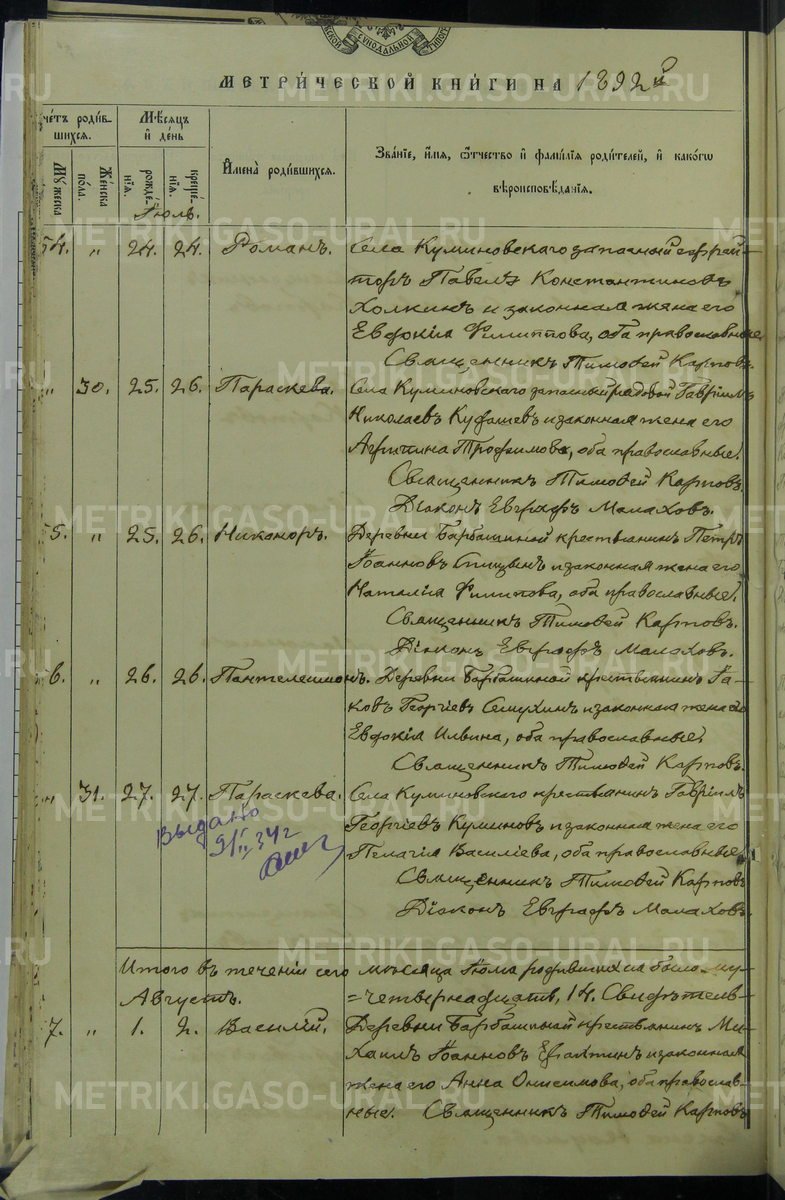 СѴНОДАЛЬНОЙ
МЕТРИ́ЧЕСКОЙ КНИ́ГИ НА 1892 й
METRIKI.GASO-URAL.RU
четъ роди́в-
шихся.
Мѣсяцъ
и день
Имена̀ роди́вшихся.
Зва́ніе, и́мя, о́тчество и фами́лія роди́телей, и како́гѡ
вѣроисповѣ́данія.
Мужеска
Женска
по́ла.
рожде́-
нія.
креще́-
нія.
Іюль.
54. „ 24. 24. Романъ. Села Куминовскаго запасный ефрей-
торъ Павелъ Константиновъ
Холкинъ и законная жена его
Евдокія Филиппова, оба православные.
Священникъ Тимоѳей Карповъ.
„ 30. 25. 26. Параскева. Села Куминовскаго запасный рядовой Гавріилъ
Николаевъ и законная жена его
Агрипина Трофимова, оба православные.
Священникъ Тимоѳей Карповъ.
Діаконъ Евграфъ Малаховъ.
5. „ 25. 26. Никаноръ. Деревни Барбашиной крестьянинъ Петръ
Іоанновъ Спицынъ и законная жена его
Наталія Филипова, оба православные.
Священникъ Тимоѳей Карповъ.
Діаконъ Евграфъ Малаховъ.
6. „ 26. 26. Пантелеимонъ. Деревни Барбашиной крестьянинъ Іа-
ковъ Георгіевъ и законная жена его
Евдокія Ильина, оба православные.
Священникъ Тимоѳей Карповъ.
„ 31. 27. 27. Параскева. Села Куминовскаго крестьянинъ Гавріилъ
Георгіевъ Куминовъ и законная жена его
Пелагія Василіева, оба православные.
Священникъ Тимоѳей Карповъ
Діаконъ Евграфъ Малаховъ.
Выдано
9/II 34 г
Итого въ теченіи сего мѣсяца Іюля родившихся было му-
Августъ. =четырнадцать, 14. Свидѣтель-
7. „ 1. 2. Василій. Деревни Барбашиной крестьянинъ Ми-
хаилъ Іоанновъ и законная
жена его Анна Онисимова, оба православ-
ные. Священникъ Тимоѳей Карповъ